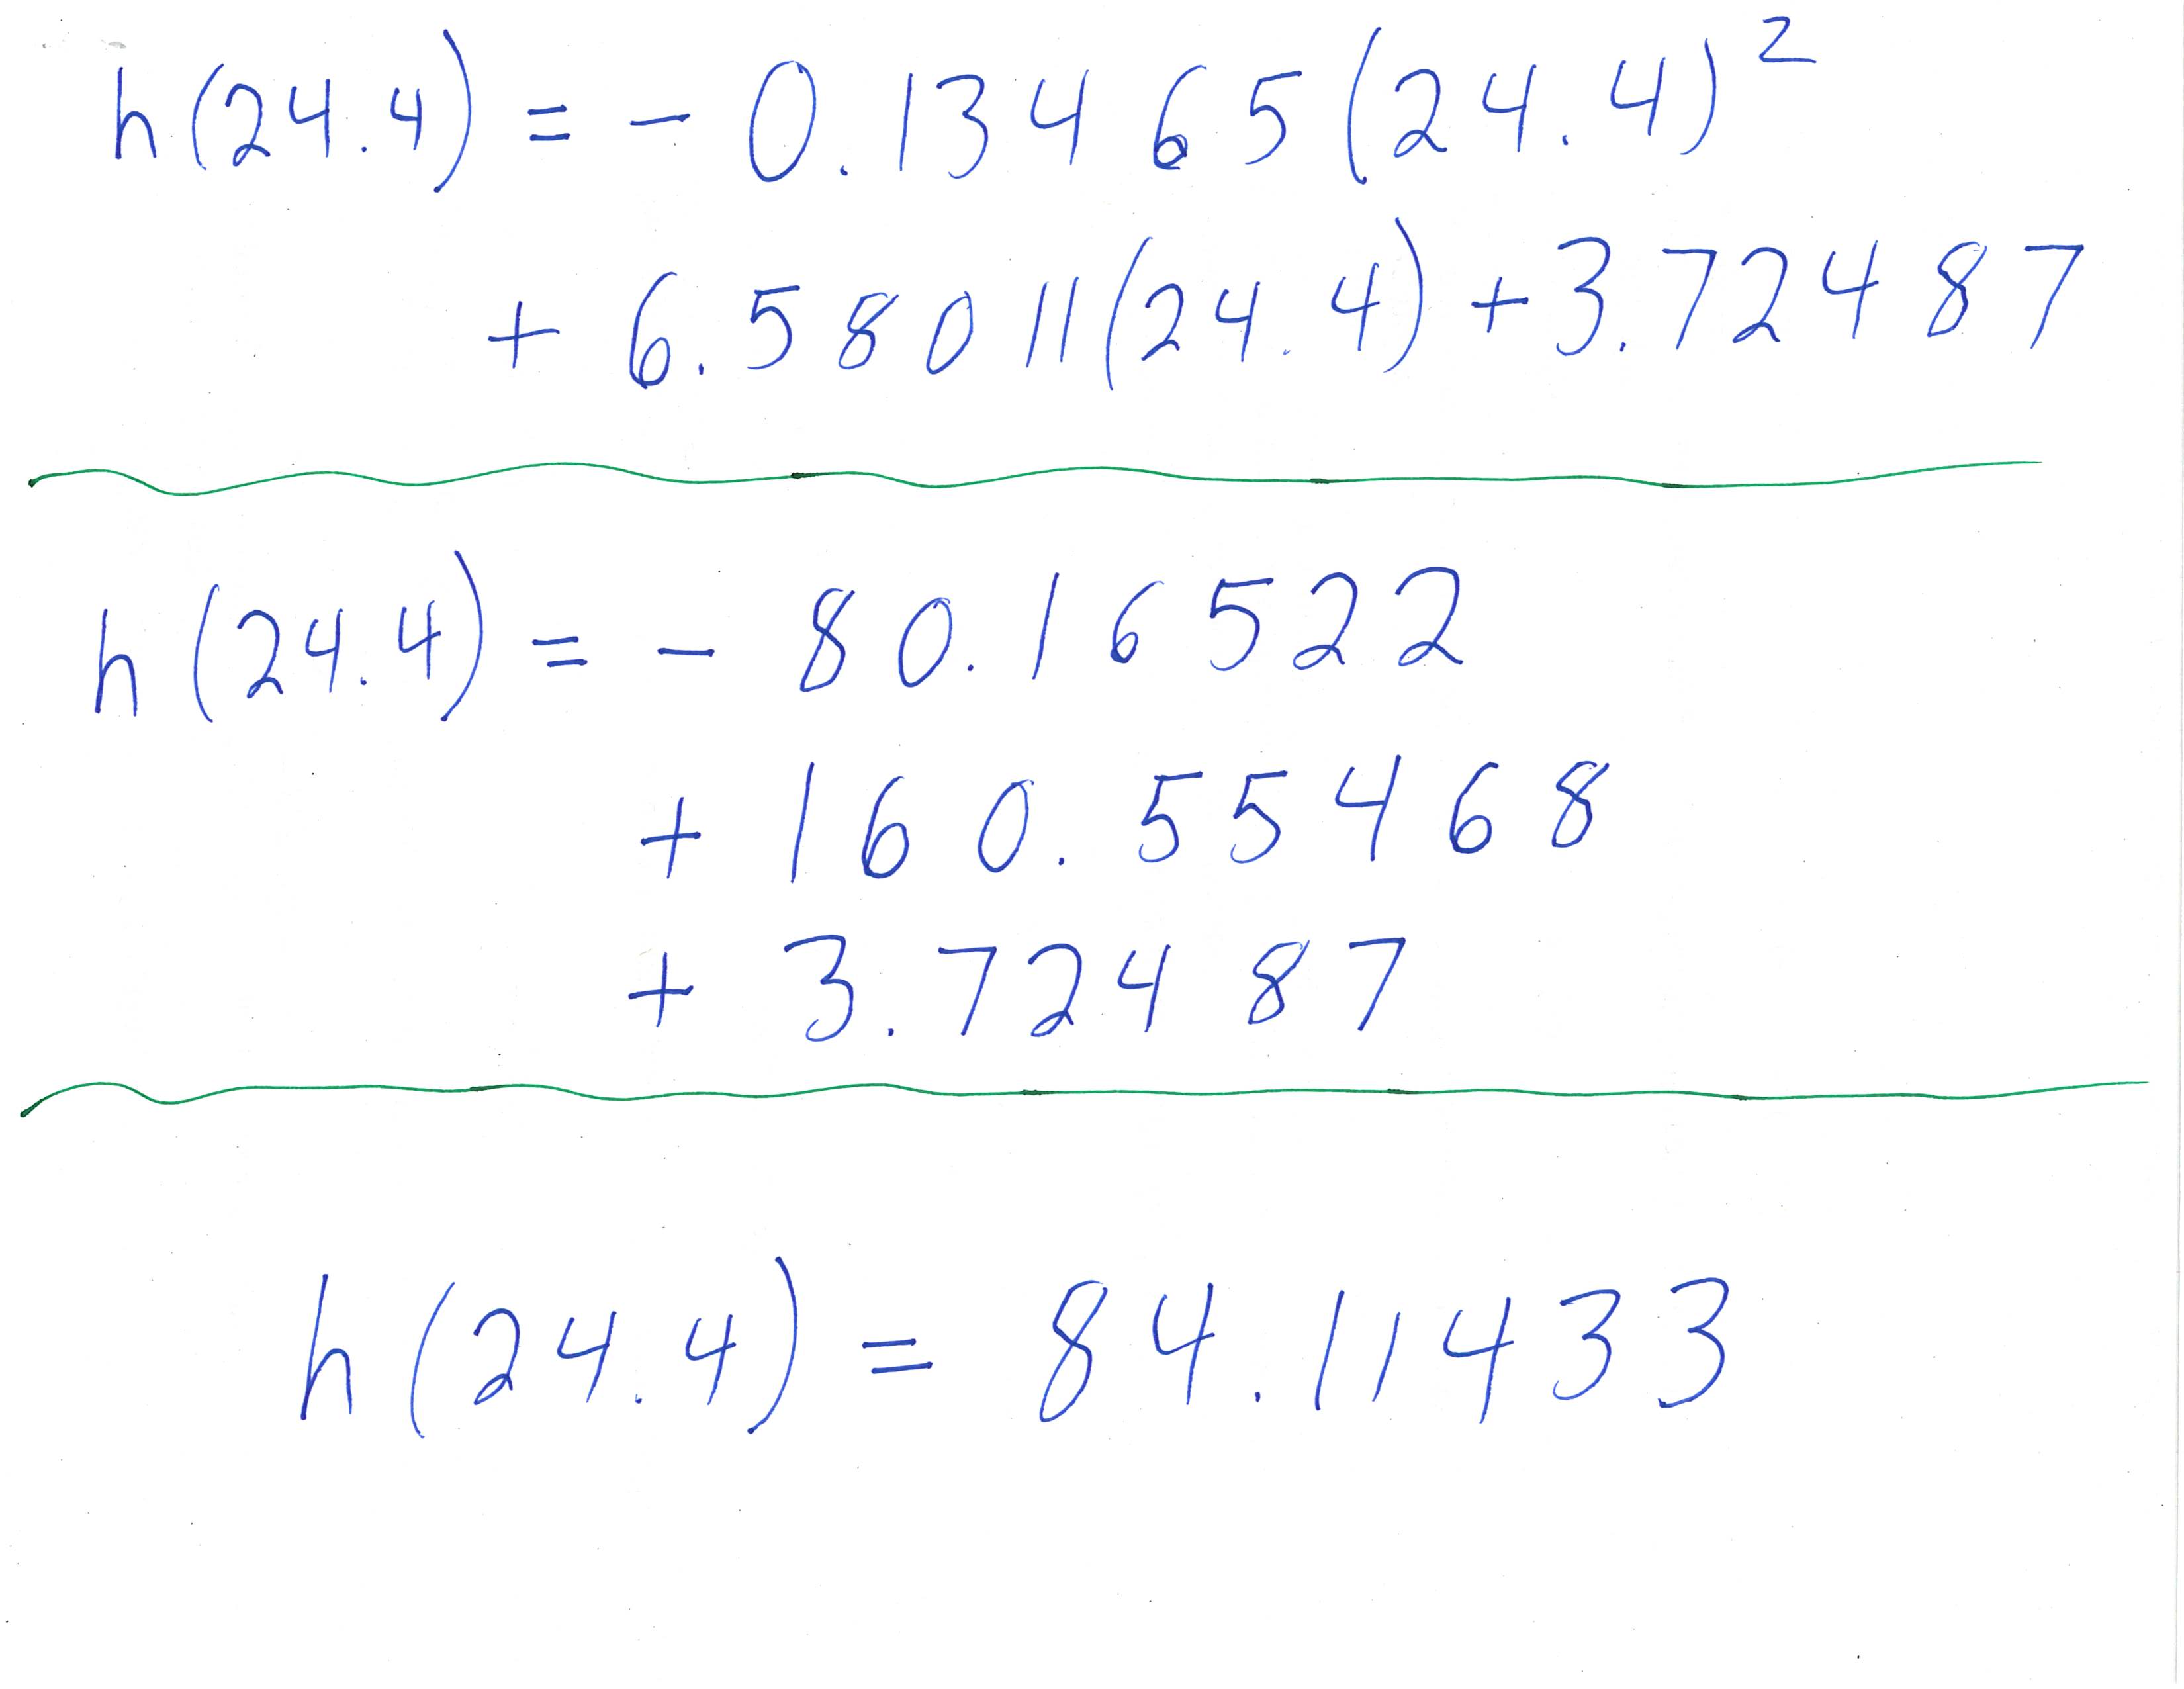 h(24.4) = - 0.13465(24.4)²
+ 6.58011(24.4) + 3.72487
h(24.4) = - 80.16522
+ 160.55468
+ 3.72487
h(24.4) = 84.11433